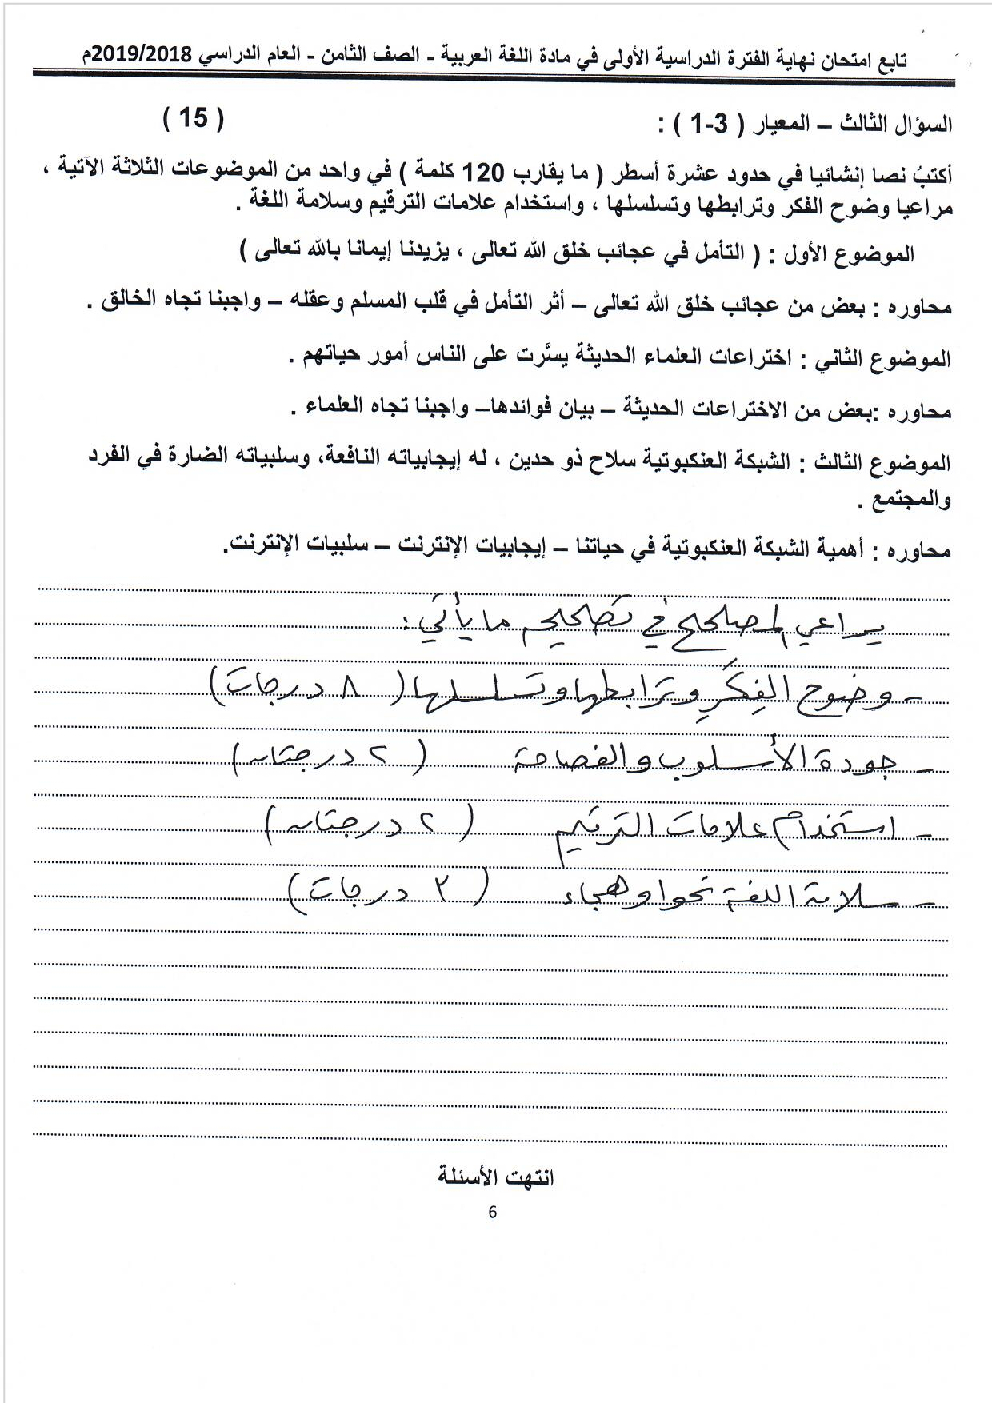 تابع امتحان نهاية الفترة الدراسية الأولى في مادة اللغة العربية - الصف الثامن - العام الدراسي 2019/2018م
السؤال الثالث – المعيار ( 3-1 ) : ( 15 )
أكتبُ نصا إنشائيا في حدود عشرة أسطر ( ما يقارب 120 كلمة ) في واحد من الموضوعات الثلاثة الآتية ،
مراعيا وضوح الفكر وترابطها وتسلسلها ، واستخدام علامات الترقيم وسلامة اللغة .
الموضوع الأول : ( التأمل في عجائب خلق الله تعالى ، يزيدنا إيمانا بالله تعالى )
محاوره : بعض من عجائب خلق الله تعالى – أثر التأمل في قلب المسلم وعقله – واجبنا تجاه الخالق .
الموضوع الثاني : اختراعات العلماء الحديثة يسَّرت على الناس أمور حياتهم .
محاوره :بعض من الاختراعات الحديثة – بيان فوائدها– واجبنا تجاه العلماء .
الموضوع الثالث : الشبكة العنكبوتية سلاح ذو حدين ، له إيجابياته النافعة، وسلبياته الضارة في الفرد
والمجتمع .
محاوره : أهمية الشبكة العنكبوتية في حياتنا – إيجابيات الإنترنت – سلبيات الإنترنت.
يراعي المصلحح في تصحيحه ما يأتي :
- وضوح الفِكَرِ وترابطها وتسلسلها ( ٨ درجات )
- جودة الأسلوب والفصاحة ( ٢ درجتان )
- استخدام علامات الترقيم ( ٢ درجتان )
- سلامة اللغة نحوا وهجاء ( ٣ درجات )
انتهت الأسئلة
6